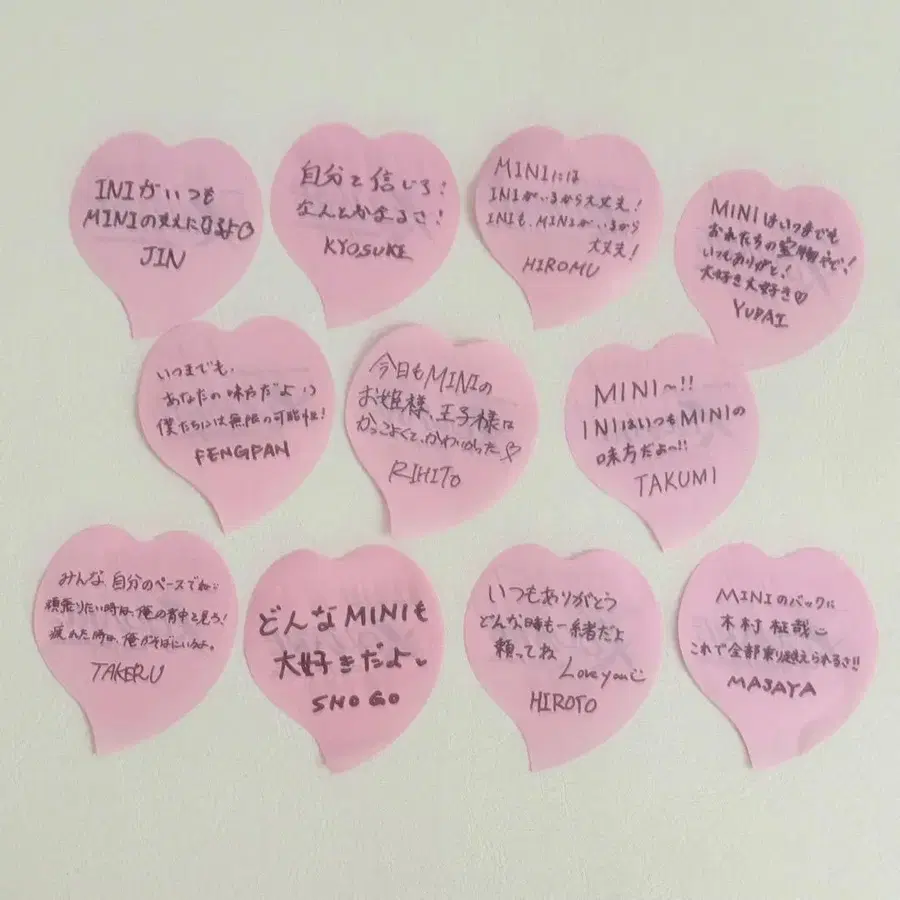 INIがいつも
MINIの支えになるよ♡
JIN
自分を信じろ!
なんとかなるさ!
KYOSUKE
MINIには
INIがいるから大丈夫!
INIも、MINIがいるから
大丈夫!
HIROMU
MINIはいつまでも
おれたちの宝物やで!
いつもありがと!
大好き大好き♡
YUDAI
いつまでも、
あなたの味方だよ
僕たちには無限の可能性!
FENGFAN
今日もMINIの
お姫様、王子様は
かっこよくて、かわいかった♡
RIHITO
MINI〜!!
INIはいつもMINIの
味方だよ〜!!
TAKUMI
みんな 自分のペースでね
頑張りたい時は、俺の背中を見ろ!
疲れた時は、俺がそばにいるよ。
TAKERU
どんなMINIも
大好きだよ
SHOGO
いつもありがとう
どんな時も一緒だよ
頼ってね
Love you
HIROTO
MINIのバックに
木村柾哉
これで全部乗り越えられるさ!!
MASAYA